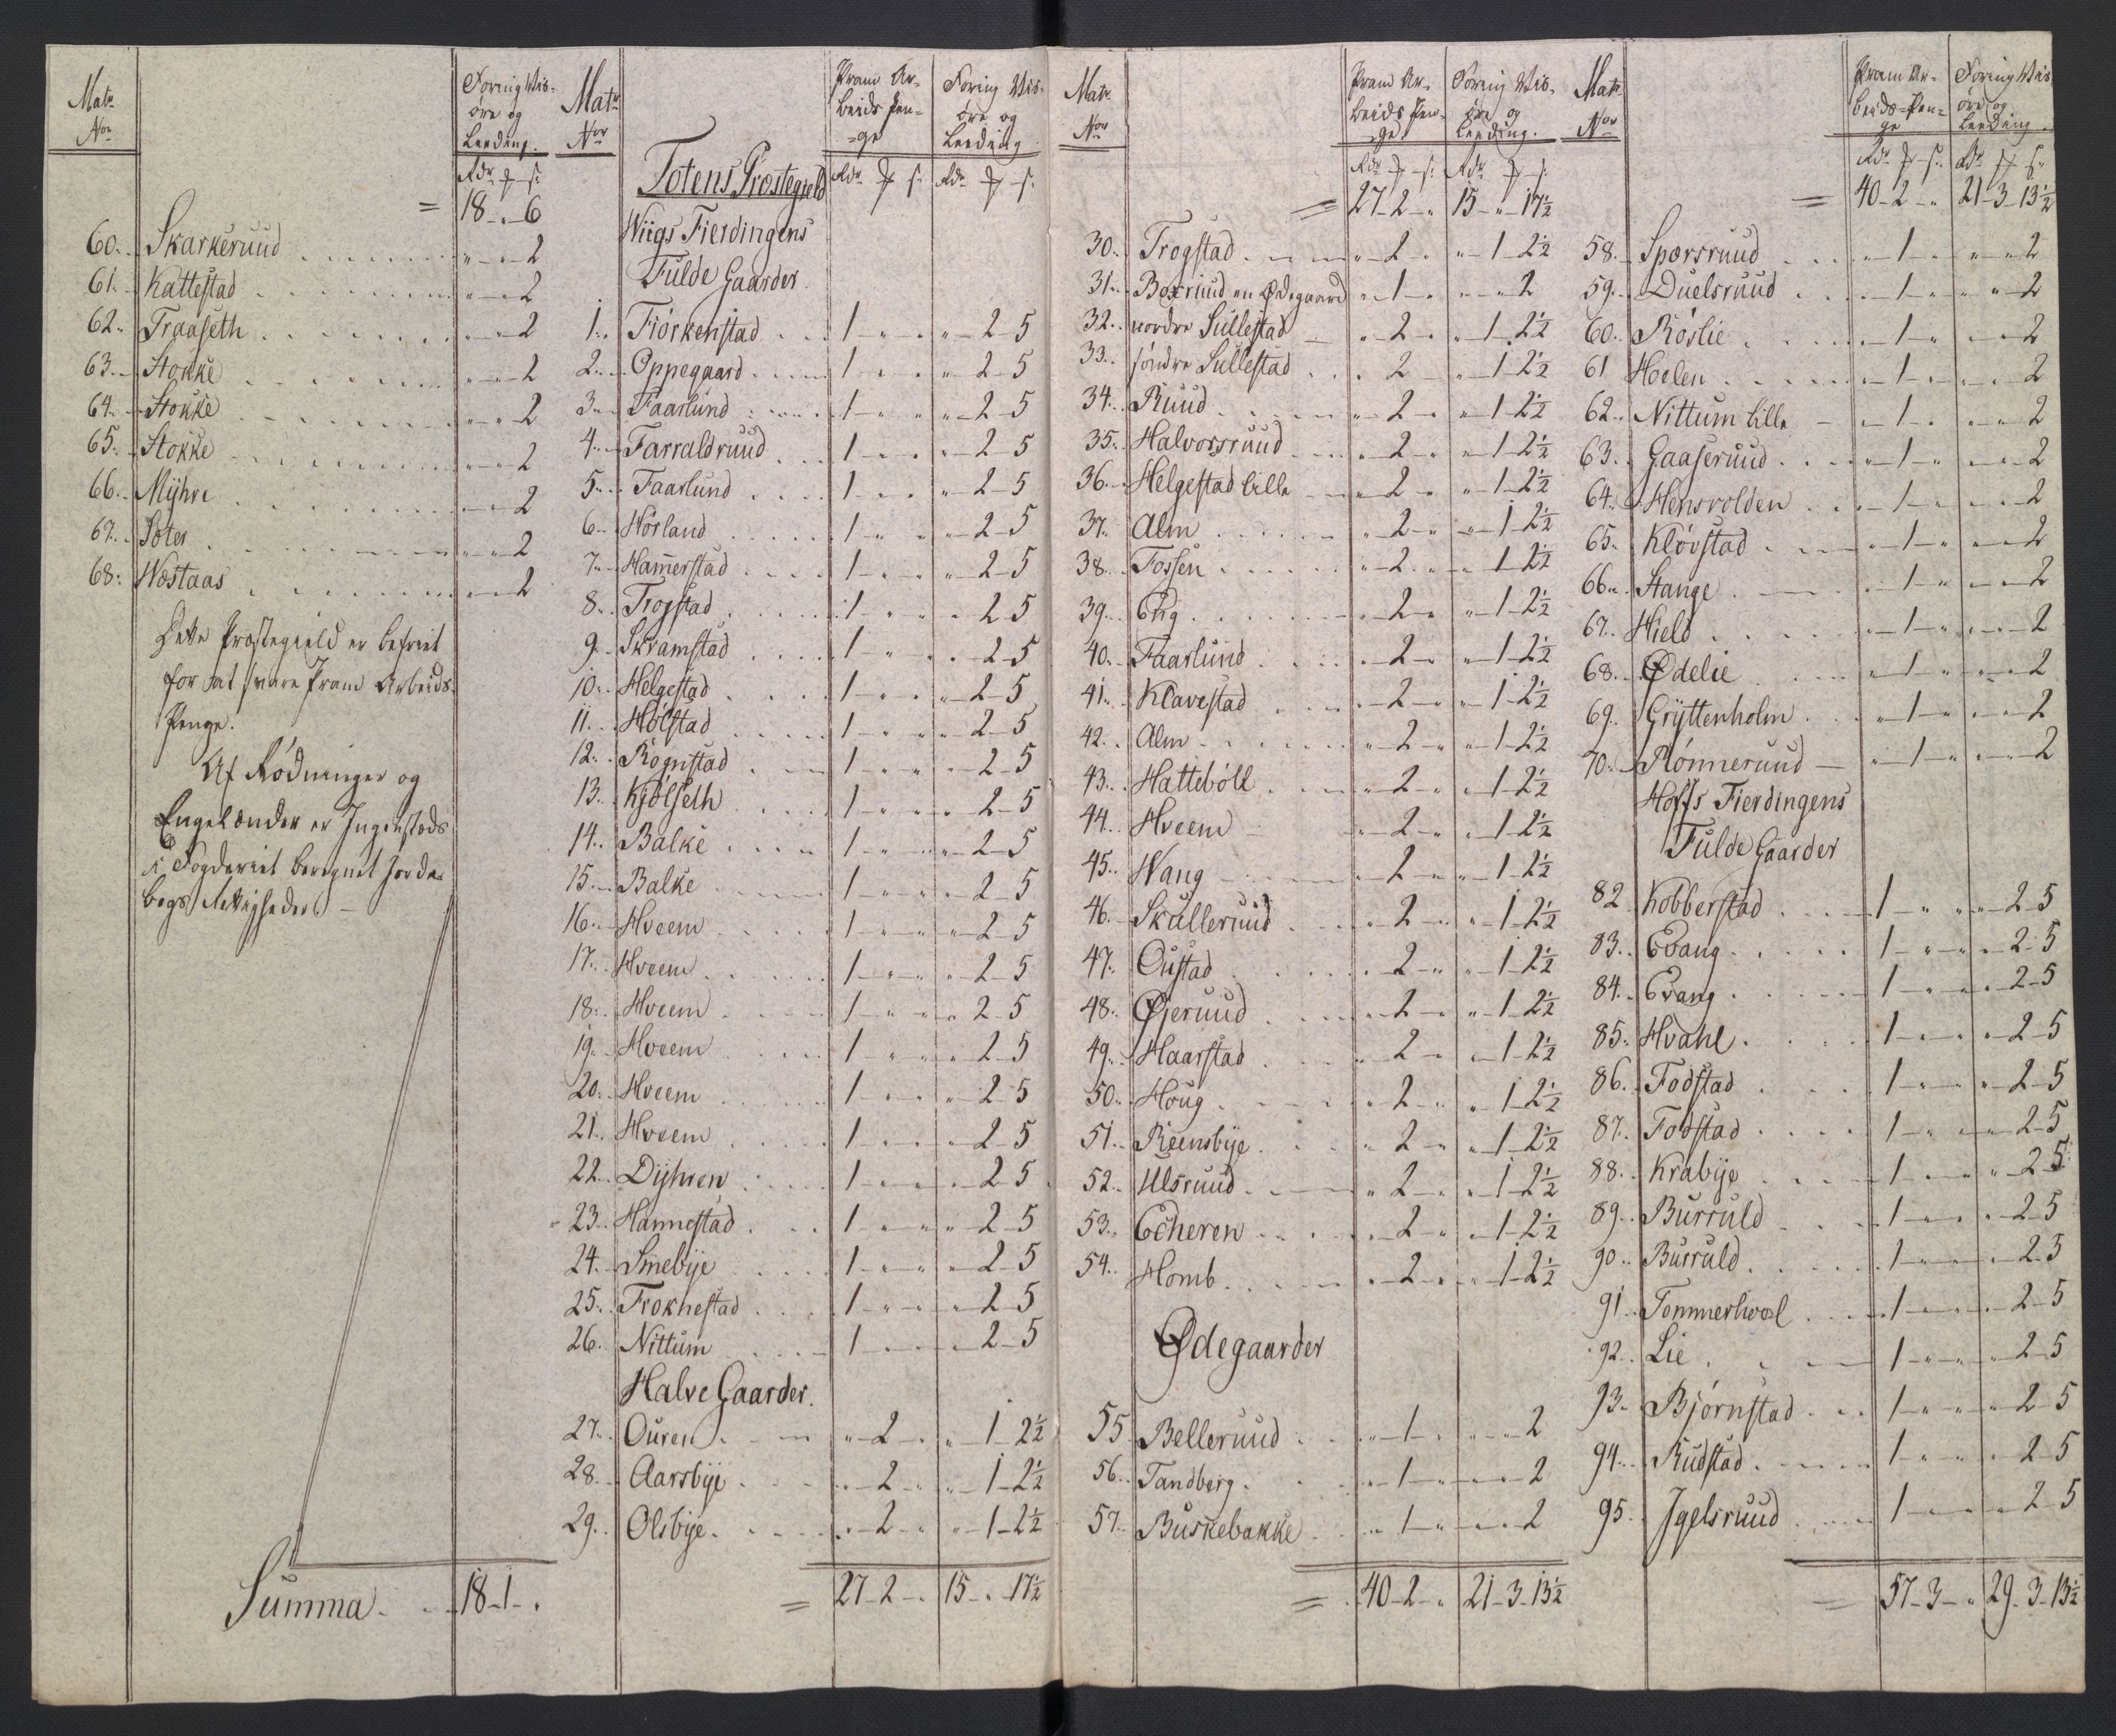 Matr
Nor
Foring Vis-
øre og
Leeding.
Rdr ₰ s:
= 18 - " - 6
60. Skarkeruud " - " - 2
61. Kattestad " - " - 2
62. Traaseth " - " - 2
63. Stokke " - " - 2
64. Stokke " - " - 2
65. Stokke " - " - 2
66. Myhre " - " - 2
67. Sæter " - " - 2
68. Wæstaas " - " - 2
Dette Præstegield er befriet
for at svare Pram Arbeids-
Penge.
Af Rødninger og
Engelænder er Ingenstæds
i Fogderiet beregnet Jorde-
bogs Rettigheder. -
Summa 18 - 1 - "
Matr
Nor
Totens Præstegield
Pram Ar-
beids Pen-
ge
Foring Vis-
øre og
Leeding
Rdr ₰ s: Rdr ₰ s:
Wiigs Fierdingens
Fulde Gaarder.
1. Fiørkenstad 1 - " - " " - 2 - 5
2. Oppegaard 1 - " - " " - 2 - 5
3. Faarlund 1 - " - " " - 2 - 5
4. Farraldruud 1 - " - " " - 2 - 5
5. Faarlund 1 - " - " " - 2 - 5
6. Hørland 1 - " - " " - 2 - 5
7. Hamerstad 1 - " - " " - 2 - 5
8. Trogstad 1 - " - " " - 2 5
9. Skramstad 1 - " - " " - 2 - 5
10. Helgestad 1 - " - " " - 2 - 5
11. Holstad 1 - " - " " - 2 - 5
12. Rognstad 1 - " - " " - 2 - 5
13. Kjølseth 1 - " - " " - 2 - 5
14. Balke 1 - " - " " - 2 - 5
15. Balke 1 - " - " " - 2 - 5
16. Hveem 1 - " - " " - 2 - 5
17. Hveem 1 - " - " " - 2 - 5
18. Hveem 1 - " - " " - 2 - 5
19. Hveem 1 - " - " " - 2 - 5
20. Hveem 1 - " - " " - 2 - 5
21. Hveem 1 - " - " " - 2 - 5
22. Dyhren 1 - " - " " - 2 - 5
23. Hannestad 1 - " - " " - 2 - 5
24. Smebye 1 - " - " " - 2 - 5
25. Froknestad 1 - " - " " - 2 - 5
26. Nittum 1 - " - " " - 2 - 5
Halve Gaarder.
27. Ouren " - 2 - " " - 1 - 2½
28. Aarsbye " - 2 - " " - 1 - 2½
29. Olsbye " - 2 - " " - 1 - 2½
= 27 - 2 - " 15 - " - 17½
Matr
Nor
Pram Ar-
beids Pen-
ge
Foring Vis-
øre og
Leeding.
Rdr ₰ s: Rdr ₰ s:
= 27 - 2 - " 15 - " - 17½
30. Trogstad " - 2 - " " - 1 - 2½
31. Boxriud en Ødegaard " - 1 - " " - " - 2
32. nordre Sullestad " - 2 - " " - 1 - 2½
33. søndre Sullestad " - 2 - " " - 1 - 2½
34. Ruud " - 2 - " " - 1 - 2½
35. Halvorsruud " - 2 - " " - 1 - 2½
36. Helgestad lille " - 2 - " " - 1 - 2½
37. Alm " - 2 - " " - 1 - 2½
38. Fossen " - 2 - " " - 1 - 2½
39. Eng " - 2 - " " - 1 - 2½
40. Faarlund " - 2 - " " - 1 - 2½
41. Klavestad " - 2 - " " - 1 - 2½
42. Alm " - 2 - " " - 1 - 2½
43. Hattebøll " - 2 - " " - 1 - 2½
44. Hveem " - 2 - " " - 1 - 2½
45. Wang " - 2 - " " - 1 - 2½
46. Skulleruud " - 2 - " " - 1 - 2½
47. Oustad " - 2 - " " - 1 - 2½
48. Øjeruud " - 2 - " " - 1 - 2½
49. Haarstad " - 2 - " " - 1 - 2½
50. Houg " - 2 - " " - 1 - 2½
51. Reensbye " - 2 - " " - 1 - 2½
52. Ulsruud " - 2 - " " - 1 - 2½
53. Echeren " - 2 - " " - 1 - 2½
54. Homb " - 2 - " " - 1 - 2½
Ødegaarder
55 Belleruud " - 1 - " " - " - 2
56. Tandberg " - 1 - " " - " - 2
57. Buskebakke " - 1 - " " - " - 2
= 40 - 2 - " 21 - 3 - 13½
Matr
Nor
Pram Ar-
beids-Pen-
ge
Foring Vis
øre og
Leeding.
Rdr ₰ s: Rdr ₰ s:
= 40 - 2 - " 21 - 3 - 13½
58. Sporsruud " - 1 - " " - " - 2
59. Duelsruud " - 1 - " " - " - 2
60. Røslie " - 1 - " " - " - 2
61 Hoelen " - 1 - " " - " - 2
62. Nittum lille " - 1 - " " - " - 2
63. Gaaseruud " - 1 - " " - " - 2
64. Hensvolden " - 1 - " " - " - 2
65. Kløvstad " - 1 - " " - " - 2
66. Stange " - 1 - " " - " - 2
67. Hield " - 1 - " " - " - 2
68. Ødelie " - 1 - " " - " - 2
69. Gryttenholm " - 1 - " " - " - 2
70. Rønneruud " - 1 - " " - " - 2
Hoffs Fierdingens
Fulde Gaarder
82. Kobberstad 1 - " - " " - 2 - 5
83. Evang 1 - " - " " - 2 - 5
84. Evang 1 - " - " " - 2 - 5
85. Hvahl 1 - " - " " - 2 - 5
86. Fodstad 1 - " - " " - 2 - 5
87. Fodstad 1 - " - " " - 2 - 5
88. Krabye 1 - " - " " - 2 5
89. Burruld 1 - " - " " - 2 - 5
90. Burruld 1 - " - " " - 2 - 5
91. Tommerhvoel 1 - " - " " - 2 - 5
92. Lie 1 - " - " " - 2 - 5
93. Bjørnstad 1 - " - " " - 2 - 5
94. Rudstad 1 - " - " " - 2 - 5
95. Igelsruud 1 - " - " " - 2 - 5
= 57 - 3 - " 29 - 3 - 13½